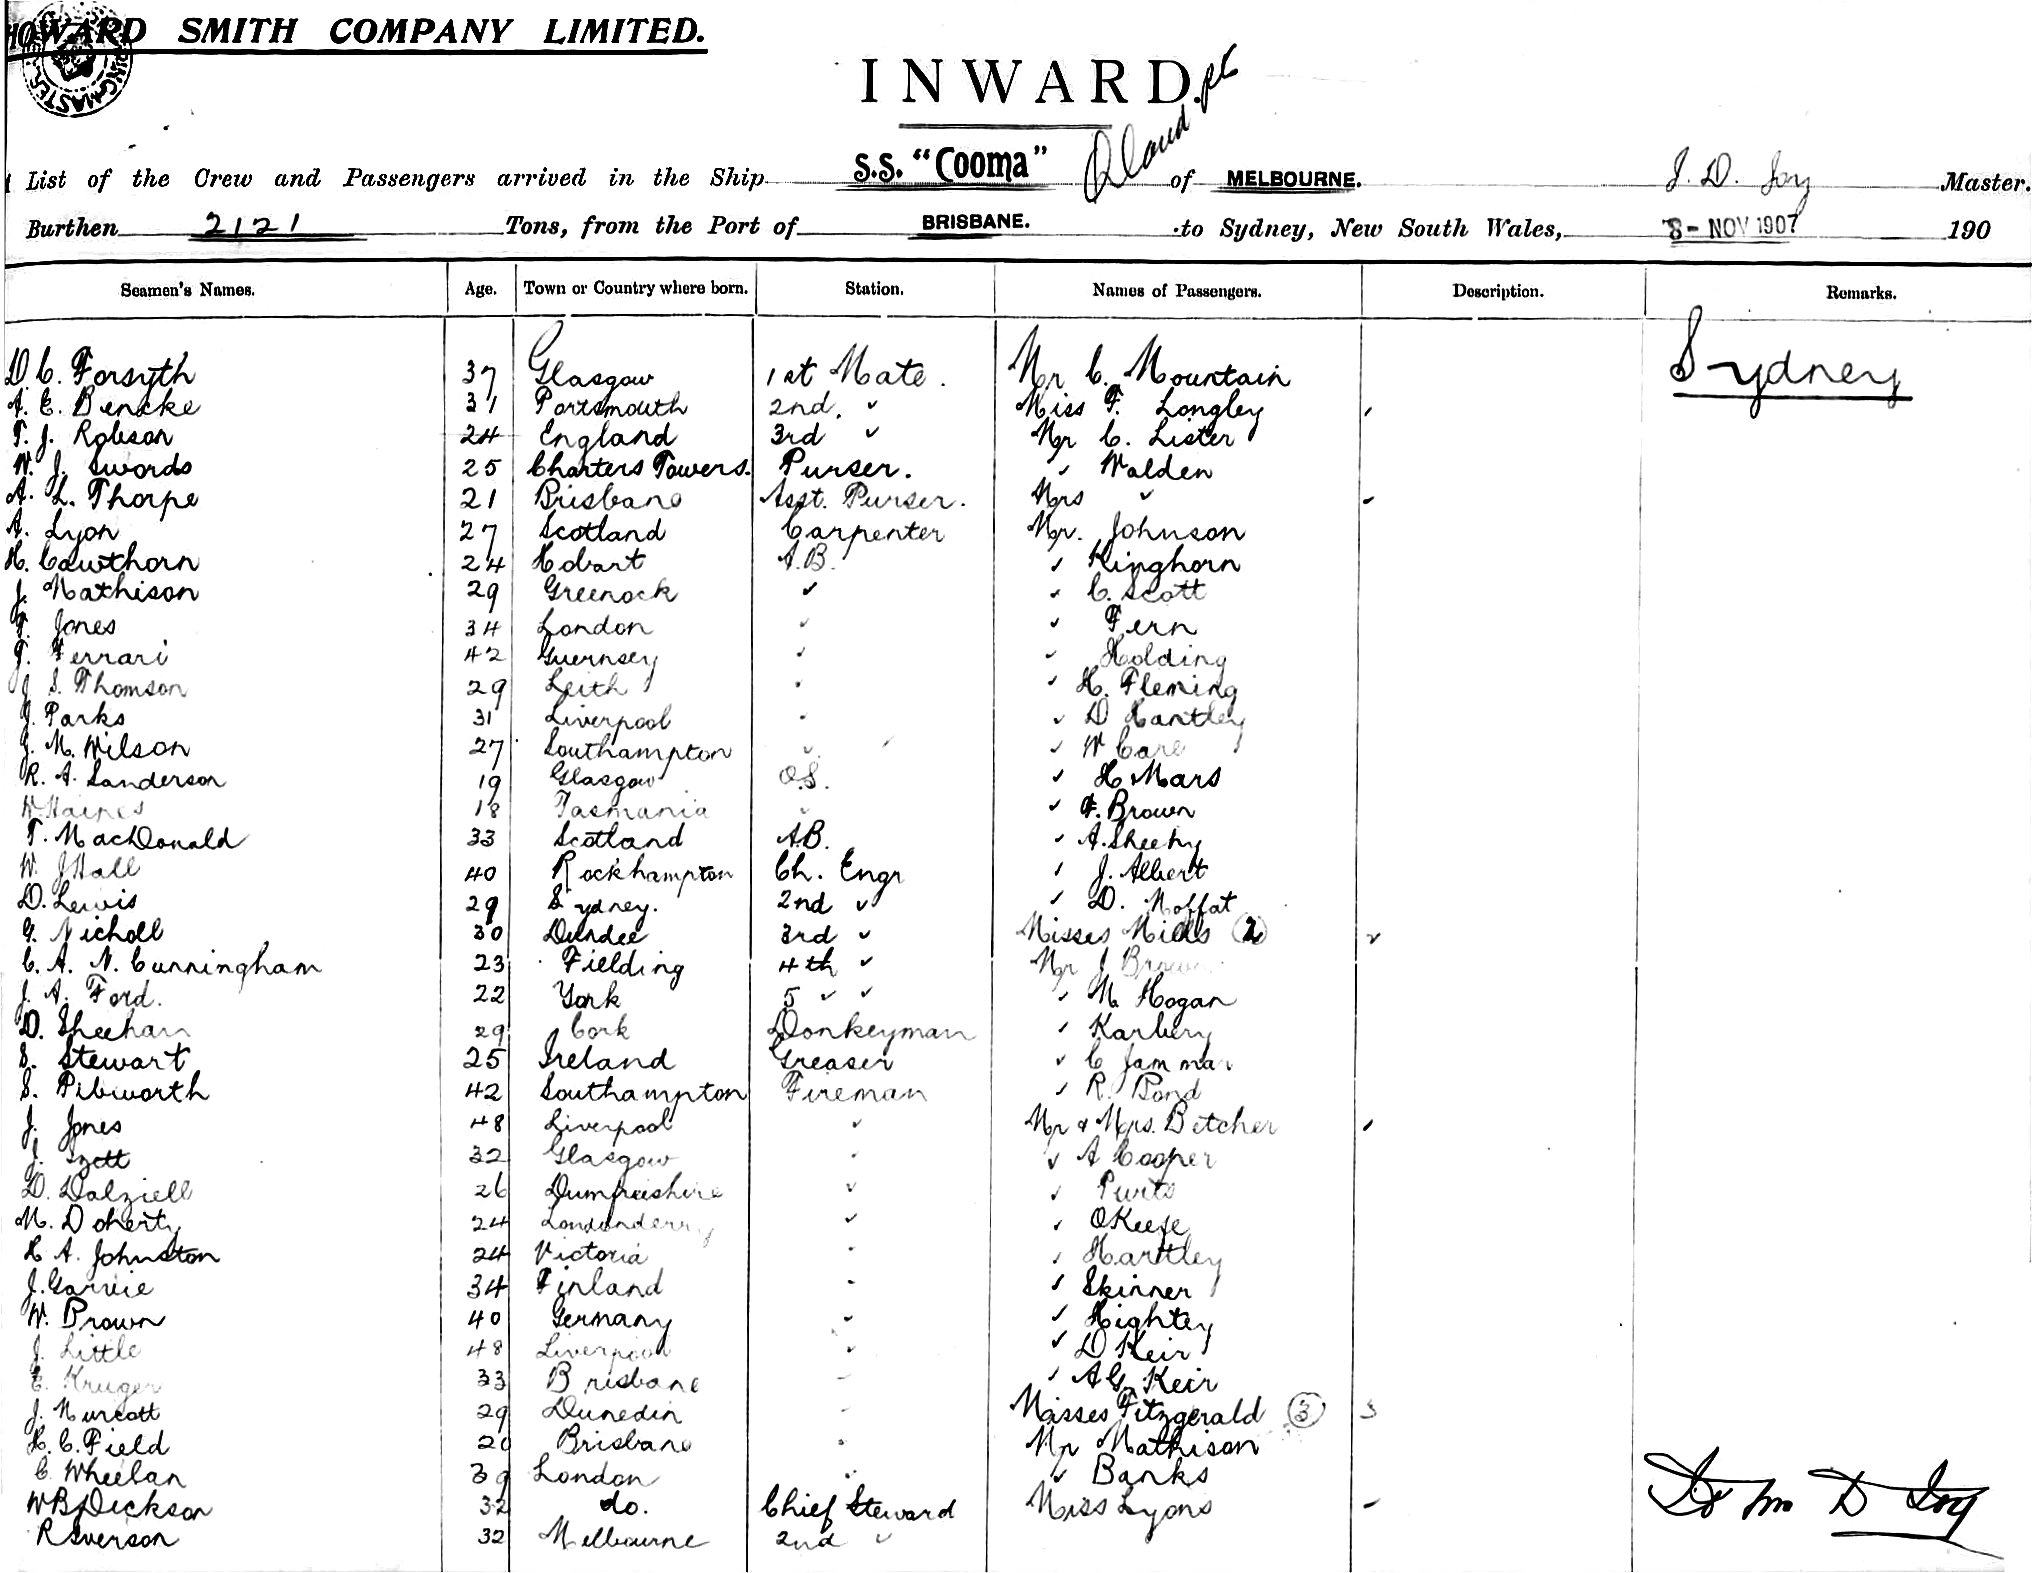 HOWARD SMITH COMPANY LIMITED.
INWARD.
List of the Crew and Passengers arrived in the Ship S.S. "Cooma" of MELBOURNE. J. D. Joy Master.
Burthen 2121 Tons, from the Port of BRISBANE. to Sydney, New South Wales, 8 - NOV 1907 190
Seamen's Names. Age. Town or Country where born. Station. Names of Passengers. Description. Remarks.
D. C. Forsyth 37 Glasgow 1st Mate. Mr C. Mountain Sydney
A. E. Bencke 31 Portsmouth 2nd. " Miss F. Longley
T. J. Robson 24 England 3rd " Mr C. Lister
W. J. Swords 25 Charters Towers. Purser. " Walden
A. L. Thorpe 21 Brisbane Asst. Purser. Mrs "
A. Lyon 27 Scotland Carpenter Mr. Johnson
H. Cawthorn 24 Hobart A.B. " Kinghorn
J. Mathison 29 Greenock " " C. Scott
F. Jones 34 London " " Fern
J. Ferrari 42 Guernsey " " Holding
J. S. Thomson 29 Leith " " H. Fleming
J. Parks 31 Liverpool " " D Hartley
J. M. Wilson 27 Southampton " " W Care
R. A. Sanderson 19 Glasgow O.S. " H Mars
W Haines 18 Tasmania " " F. Brown
T. MacDonald 33 Scotland A.B. " A. Sheehy
W. J Hall 40 Rockhampton Ch. Engr " J. Albert
D. Lewis 29 Sydney. 2nd " " D. Moffat
G. Nicholl 30 Dundee 3rd " Misses Mills (2)
C. A. N. Cunningham 23 Fielding 4th " Mr J Brown
J. A. Ford. 22 York 5 " " " M. Hogan
D. Sheehan 29 Cork Donkeyman " Karbery
S. Stewart 25 Ireland Greaser " C
S. Pibworth 42 Southampton Fireman " R. Bond
J. Jones 48 Liverpool " Mr & Mrs. Betcher
J. 32 Glasgow " " A Cooper
D. Dalziell 26 Dumfrieshire " "
M. Doherty 24 Londonderry " " OKeefe
H A. Johnston 24 Victoria " " Hartley
J. Garvie 34 Finland " " Skinner
W. Brown 40 Germany " " Hightey
J. Little 48 Liverpool " " D Keir
E. Kruger 33 Brisbane " " A G. Keir
J. Murcott 29 Dunedin " Misses Fitzgerald (3) 3
H. C. Field 20 Brisbane " Mr Mathison
C. Wheelan 39 London " " Banks
W B Dickson 32 do. Chief Steward Miss Lyons
R Iverson 32 Melbourne 2nd "